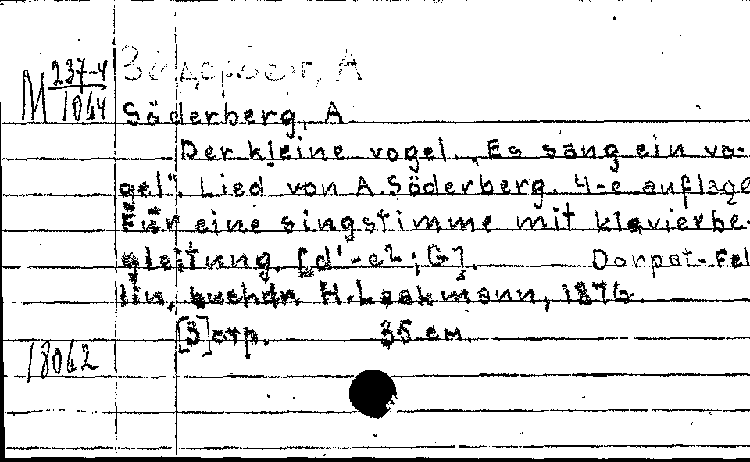 Зёдерберг, А
М 237-4
1064
Söderberg, A.
Der kleine vogel. „Es sang ein vo-
gel“. Lied von A. Söderberg. 4-e auflage
Für eine singstimme mit klavierbe-
gleitung. [d¹-e2; G]. Dorpat-Fel
lin, buchdr. H. Laakmann, 1876.
[3] стр. 35 см.
18062